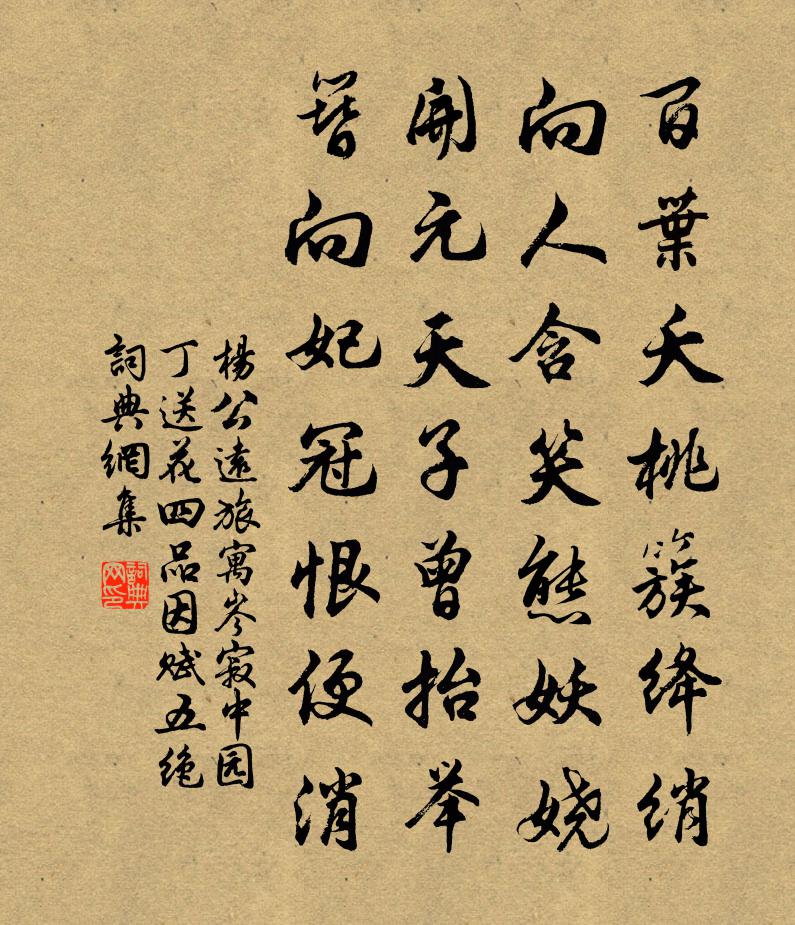 百葉夭桃簇絳綃
向人含笑態妖嬈
開元天子曾抬举
簪向妃冠恨便消
楊公遠旅寓岑寂中园
丁送花四品因赋五绝
詞典網集
詞典网印